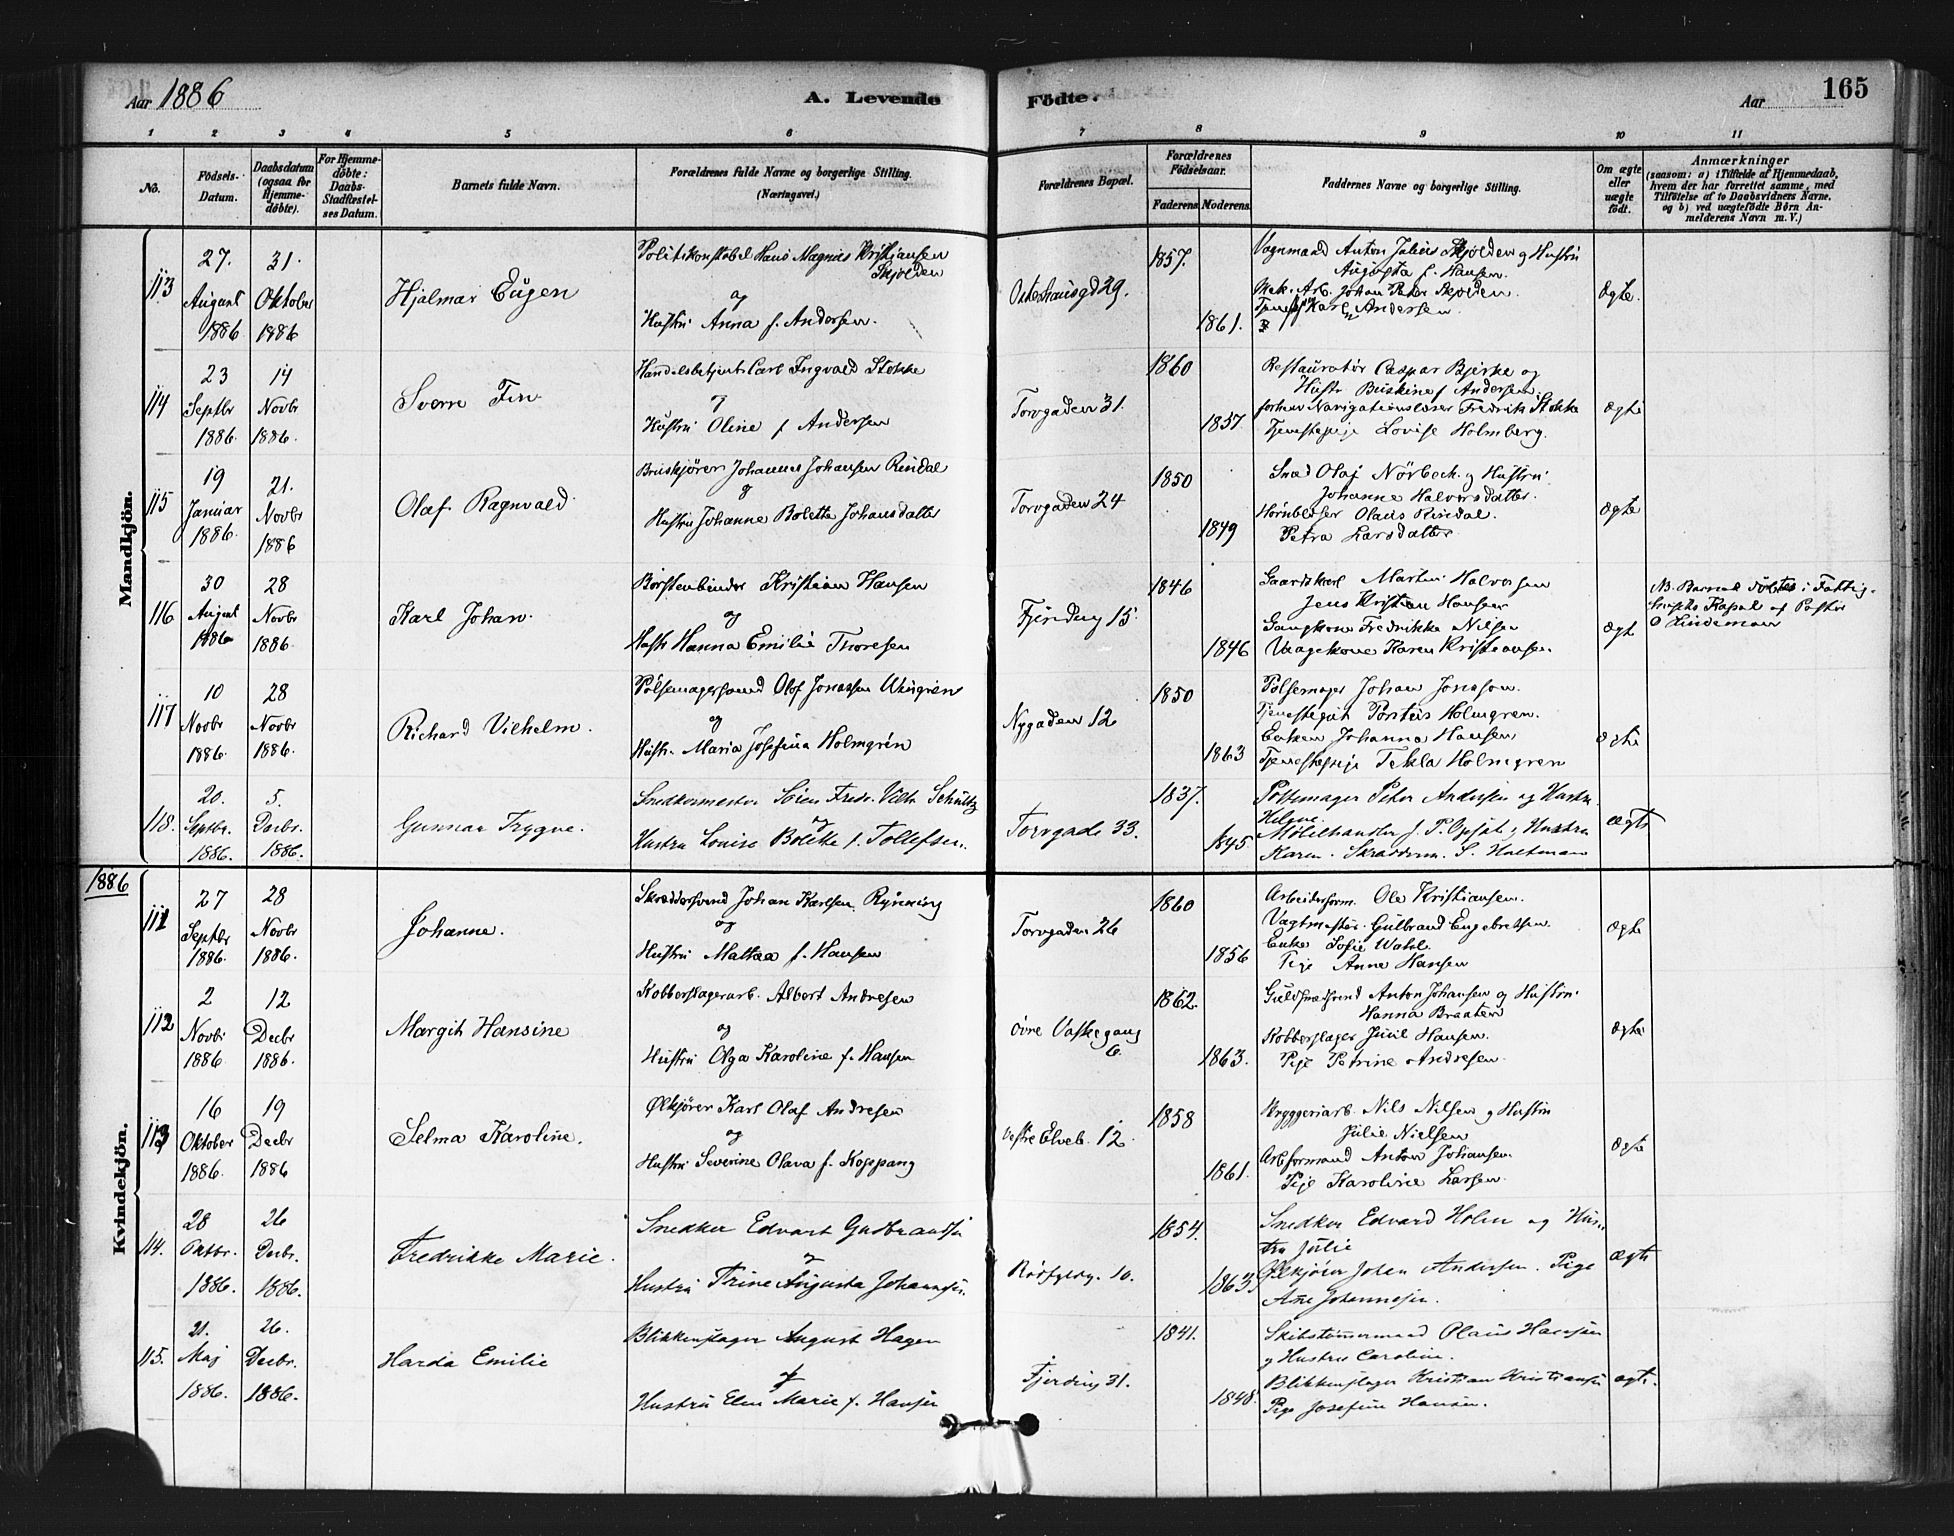 Aar 1886
A. Levende Födte.
Aar
165
1 2 3 4 5 6 7 8 9 10 11
No.
Födsels-Datum.
Daabsdatum (ogsaa for Hjemme-döbte).
For Hjemme-döbte: Daabs-Stadfæstel-ses Datum.
Barnets fulde Navn.
Forældrenes fulde Navne og borgerlige Stilling. (Næringsvei.)
Forældrenes Bopæl.
Forældrenes Födselsaar.
Faderens Moderens
Faddernes Navne og borgerlige Stilling.
Om ægte eller uægte født.
Anmærkninger
(saasom: a) i Tilfælde af Hjemmedaab,
hvem der har forrettet samme, med
Tilföielse af to Daabsvidners Navne,
og b) ved uægtefödte Börn An-
melderens Navn m. V.)
Mandkjön.
113
27. August 1886
31. Oktober 1886
Hjalmar Eugen
Politikonstabel Hans Magnus Kristiansen
Skjolden
og
Hustru Anna f. Andersen.
Osterhausgd 29.
1857.
1861.
Vognmand Anton Julius Skjolden og Hustru
Augusta f. Hansen.
Mek. Arb. Johan Peter Skjolden.
Karl Andersen.
Ægte.
114
23 Septbr 1886.
14 Novbr 1886.
Sverre Fin
Handelsbetjent Carl Ingvald Stokke
og
Hustru Oline f Andersen
Torvgaden 31.
1860
1857.
Restauratør Caspar Bjerke og
Hustr f Andersen
forhen Navigationslærer Fredrik Stokke
Tjenestepige Lovise Holmberg.
Ægte
115
19 Januar 1886.
21. Novbr 1886
Olaf Ragnvald
Bruskjører Johannes Johansen Rindal
og
Hustru Johanne Bolette Johansdatter
Torvgaden 24
1850
1849
Olaf Nörbech og Hustru
Johanne Halvorsdatter.
Hornblæser Olaus Rindal.
Petra Larsdatter
Ægte
116
30 August 1886
28 Novbr 1886.
Karl Johan.
Börstenbinder Kristian Hansen
og
Hustr Hanna Emilie Thoresen
Fjerding 15
1846
1846
Gaardskarl Martin Halvorsen
Jens Kristian Hansen
Gangkone Fredrikke Nilsen
Vaagekone Karen Kristiansen
Ægte
NB. Barnet döbtes i Fattig-
Kapel af Pastor
O Lindeman
117
10 Novbr 1886.
28 Novbr 1886.
Richard Vilhelm.
Pölsemagersvend Olof Jonassen Wingren
og
Hustr. Maria Josefina Holmgrén
Nygaden 12
1850
1863
Pölsemager Johan Jonasson.
Tjenestegut Torsten Holmgren.
Enken Johanna Hansen
Tjenestepige Tekla Holmgren
Ægte
118.
20. Septbr. 1886.
5. Decbr. 1886.
Gunnar Trygve.
Snedkermester Sören Fredr. Vilh. Schultz
og
Hustru Louise Bolette f. Tollefsen.
Torvgade 33.
1837.
1845.
Pottemager Peter Andersen og Hustru
Helene.
Möbelhandler J. P. Opsat og Hustru
Karen. Skræderm. S. Holtman
Ægte
1886
Kvindekjön.
111
27 Septbr 1886.
28 Novbr 1886.
Johanne.
Skræddersvend Johan Karlsen Rynning
og
Hustru Mathea f. Hansen
Torvgaden 26
1860
1856
Arbeidsform. Ole Kristiansen.
Vagtmester Gulbrand Engebretsen
Enke Sofie Wahl
Pige Anne Hansen
Ægte
112
2 Novbr 1886
12 Decbr 1886.
Margit Hansine
Kobberslagerarb. Albert Andresen
og
Hustru Olga Karoline f. Hansen
Övre Vaskegang
6.
1862.
1863.
Guldsmedsvend Anton Johansen og Hustru
Hanna Braaten
Kobberslager Juul Hansen.
Pige Petrine Andresen.
Ægte
113
16 Oktober 1886.
19 Decbr 1886
Selma Karoline.
Ølkjörer Karl Olaf Andresen
og
Hustru Severine Olava f. Koppang
Vestre Elveb. 12.
1858
1861.
Bryggeriarb. Nils Nilsen og Hustru
Julie Nielsen
Arb.formand Anton Johansen.
Pige Karoline Larsen.
Ægte
114.
28 Oktbr. 1886.
26 Decbr. 1886.
Fredrikke Marie.
Snedker Edvart Gulbrandsen
og
Hustru Trine Augusta Johannesen.
Rödfyldg. 10.
1854.
1863.
Snedker Edvard Holm og Hus-
tru Julie
Ølkjörer Johan Andersen. Pige
Ane Johannesen.
Ægte
115.
21. Maj 1886.
26. Decbr. 1886.
Harda Emilie
Blikkenslager August Hagen
og
Hustru Elen Marie f. Hansen
Fjerding 31.
1841.
1848.
Skibstömmermand Olaus Hansen
og Hustru Caroline.
Blikkenslager Kristian Kristiansen
Pige Josefine Hansen.
Ægte.